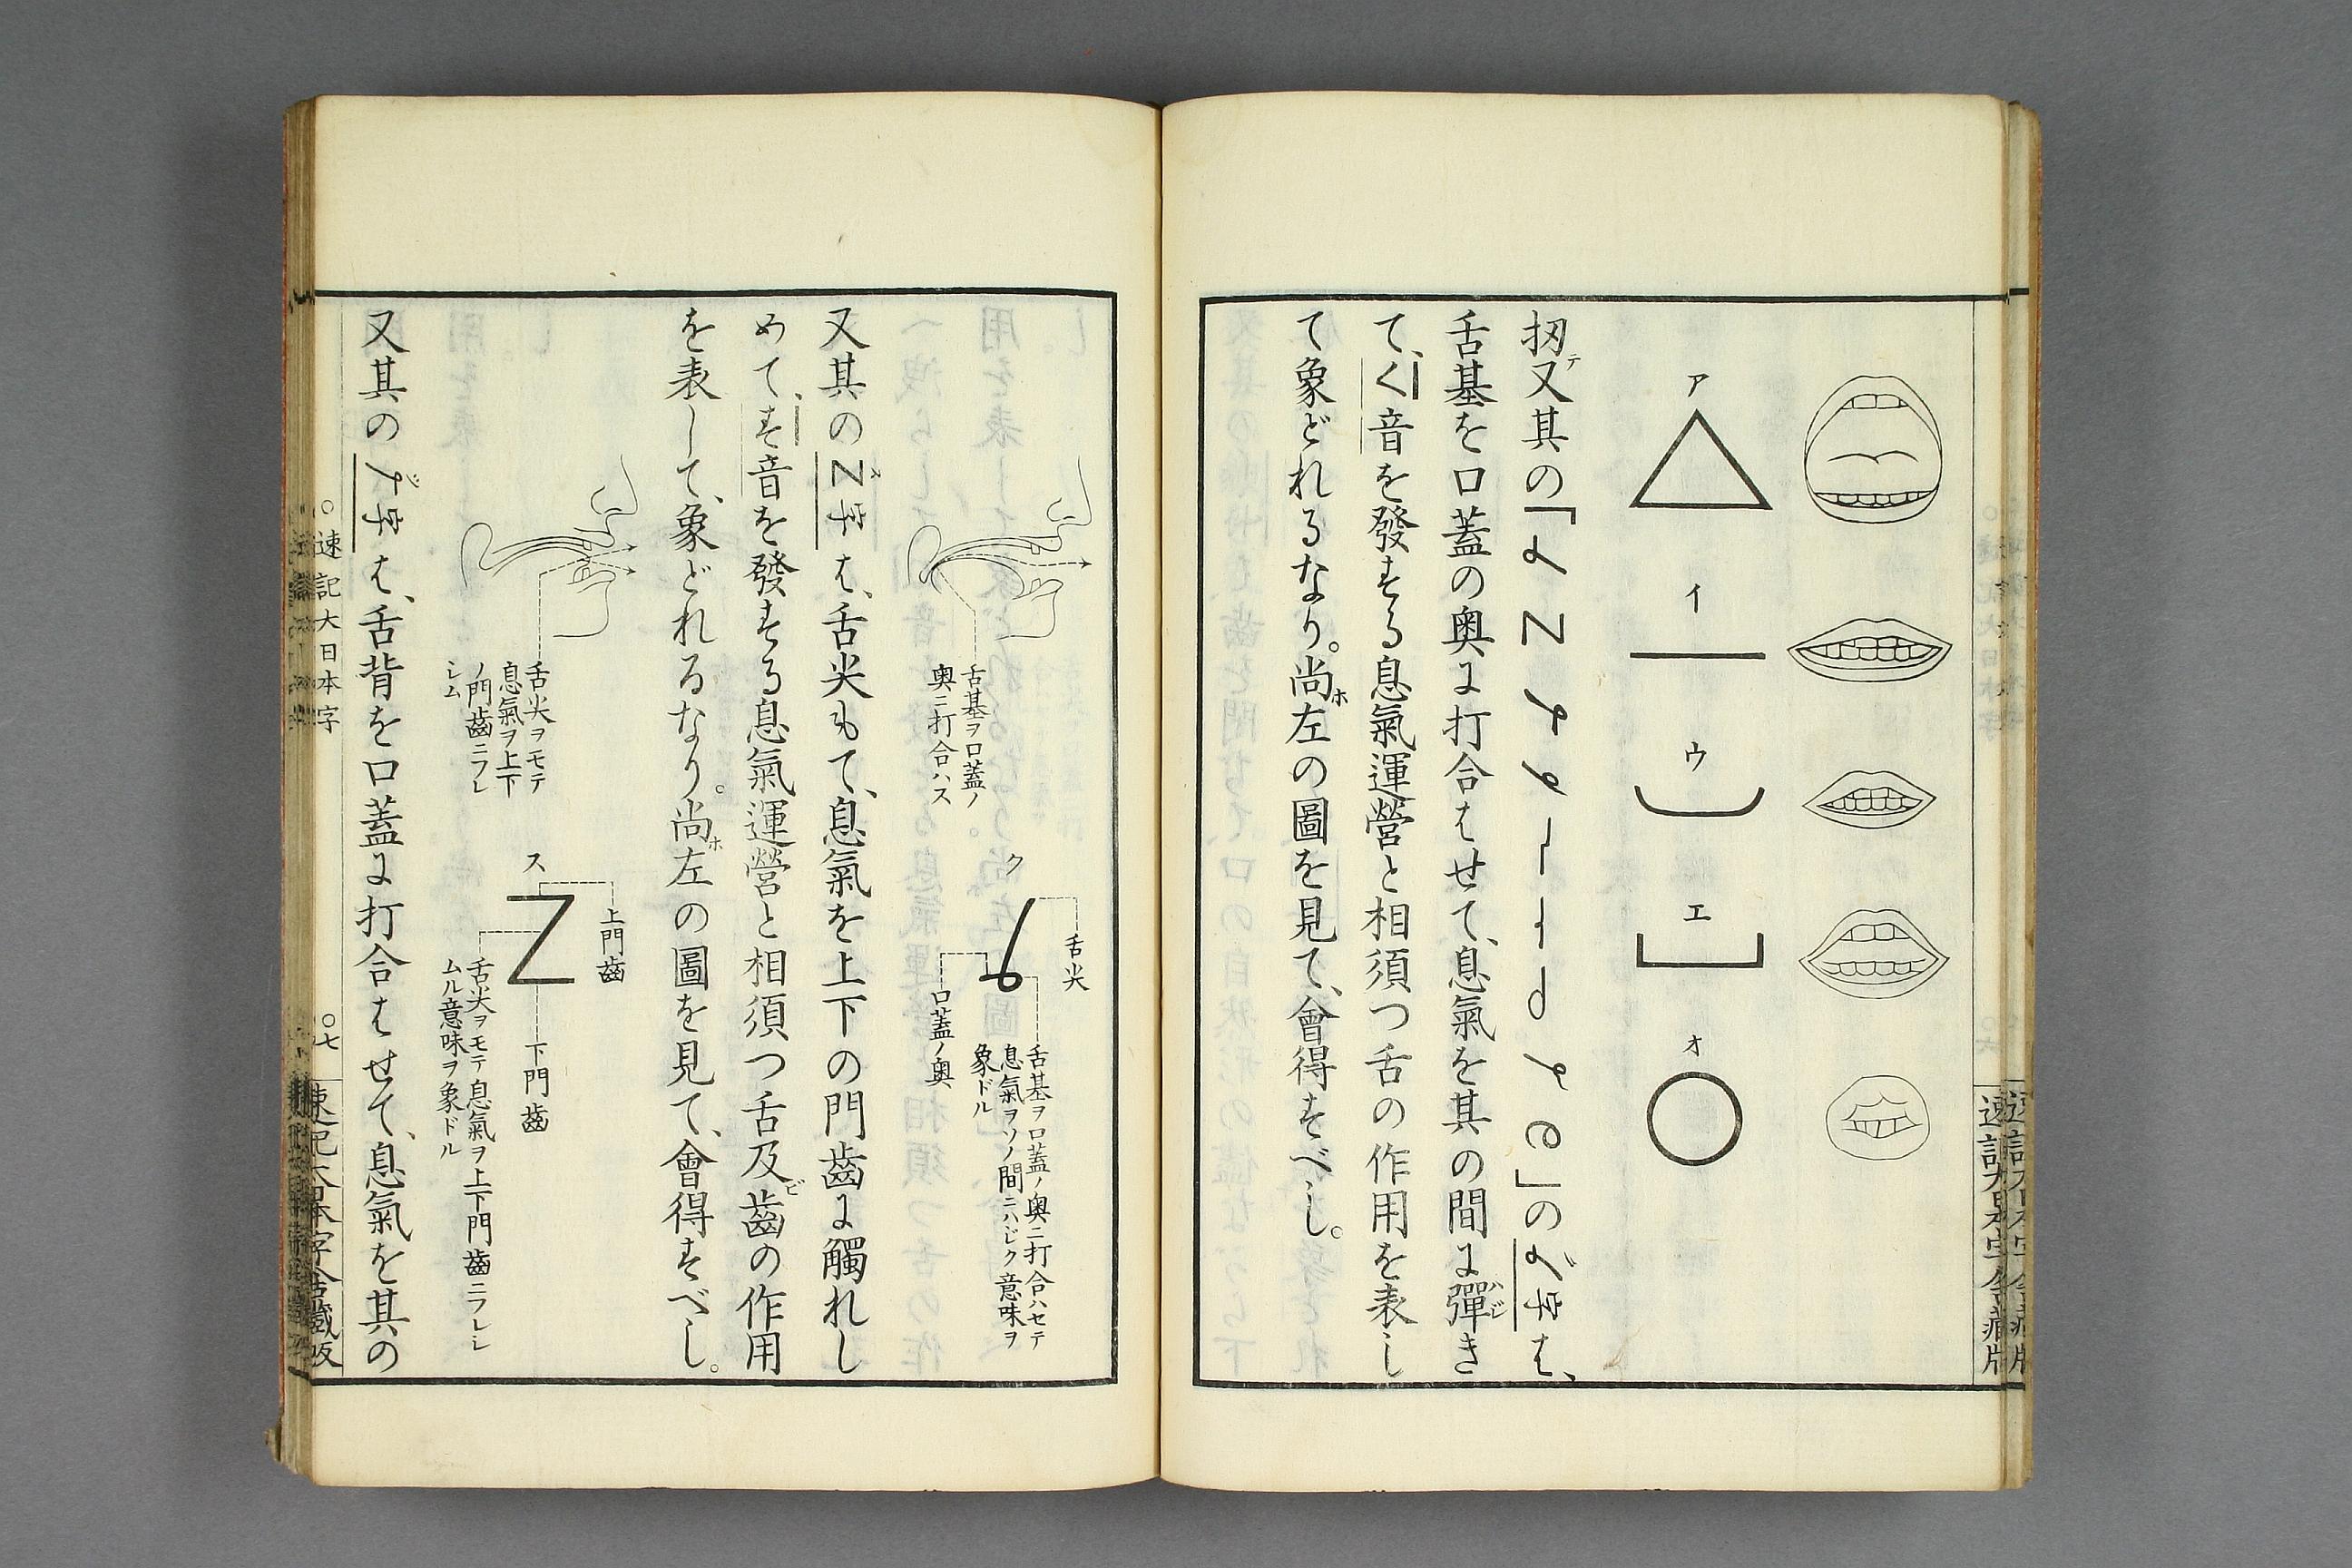 ア
イ
ウ
エ
オ
扨又其の「 」の は、
舌基を口蓋の奥に打合はせて、息氣を其の間に彈き
て、く音を發する息氣運營と相須つ舌の作用を表し
て象どれるなり。尚左の圖を見て、會得すべし。
舌基ヲ口蓋ノ
奥ニ打合ハス
ク
舌尖
口蓋ノ奥
舌基ヲ口蓋ノ奥ニ打合ハセテ
息氣ヲソノ間ニハジク意味ヲ
象ドル
又其の は、舌尖もて、息氣を上下の門齒に觸れし
めて、す音を發する息氣運營と相須つ舌及齒の作用
を表して、象どれるなり。尚左の圖を見て、會得すべし。
舌尖ヲモテ
息氣ヲ上下
ノ門齒ニフレ
シム
ス
上門齒
下門齒
舌尖ヲモテ息氣ヲ上下門齒ニフレシ
ムル意味ヲ象ドル
又其の は、舌背を口蓋に打合はせて、息氣を其の
○速記大日本字
○七